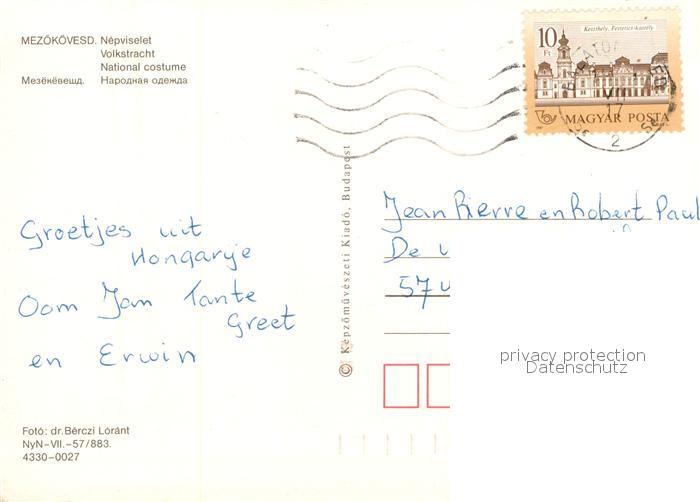 MEZŐKÖVESD. Népviselet
Volkstracht
National costume
Мезёкёвешд. Народная одежда
10 Ft
Keszthely, Festetics-kastély
MAGYAR POSTA
17
2
© Képzőművészeti Kiadó, Budapest
Groetjes uit
Hongarije
Oom Jan Tante
Greet
en Erwin
Jean Pierre en Robert Paul
De
57
privacy protection
Datenschutz
Fotó: dr. Bérczi Lóránt
NyN–VII.–57/883.
4330–0027